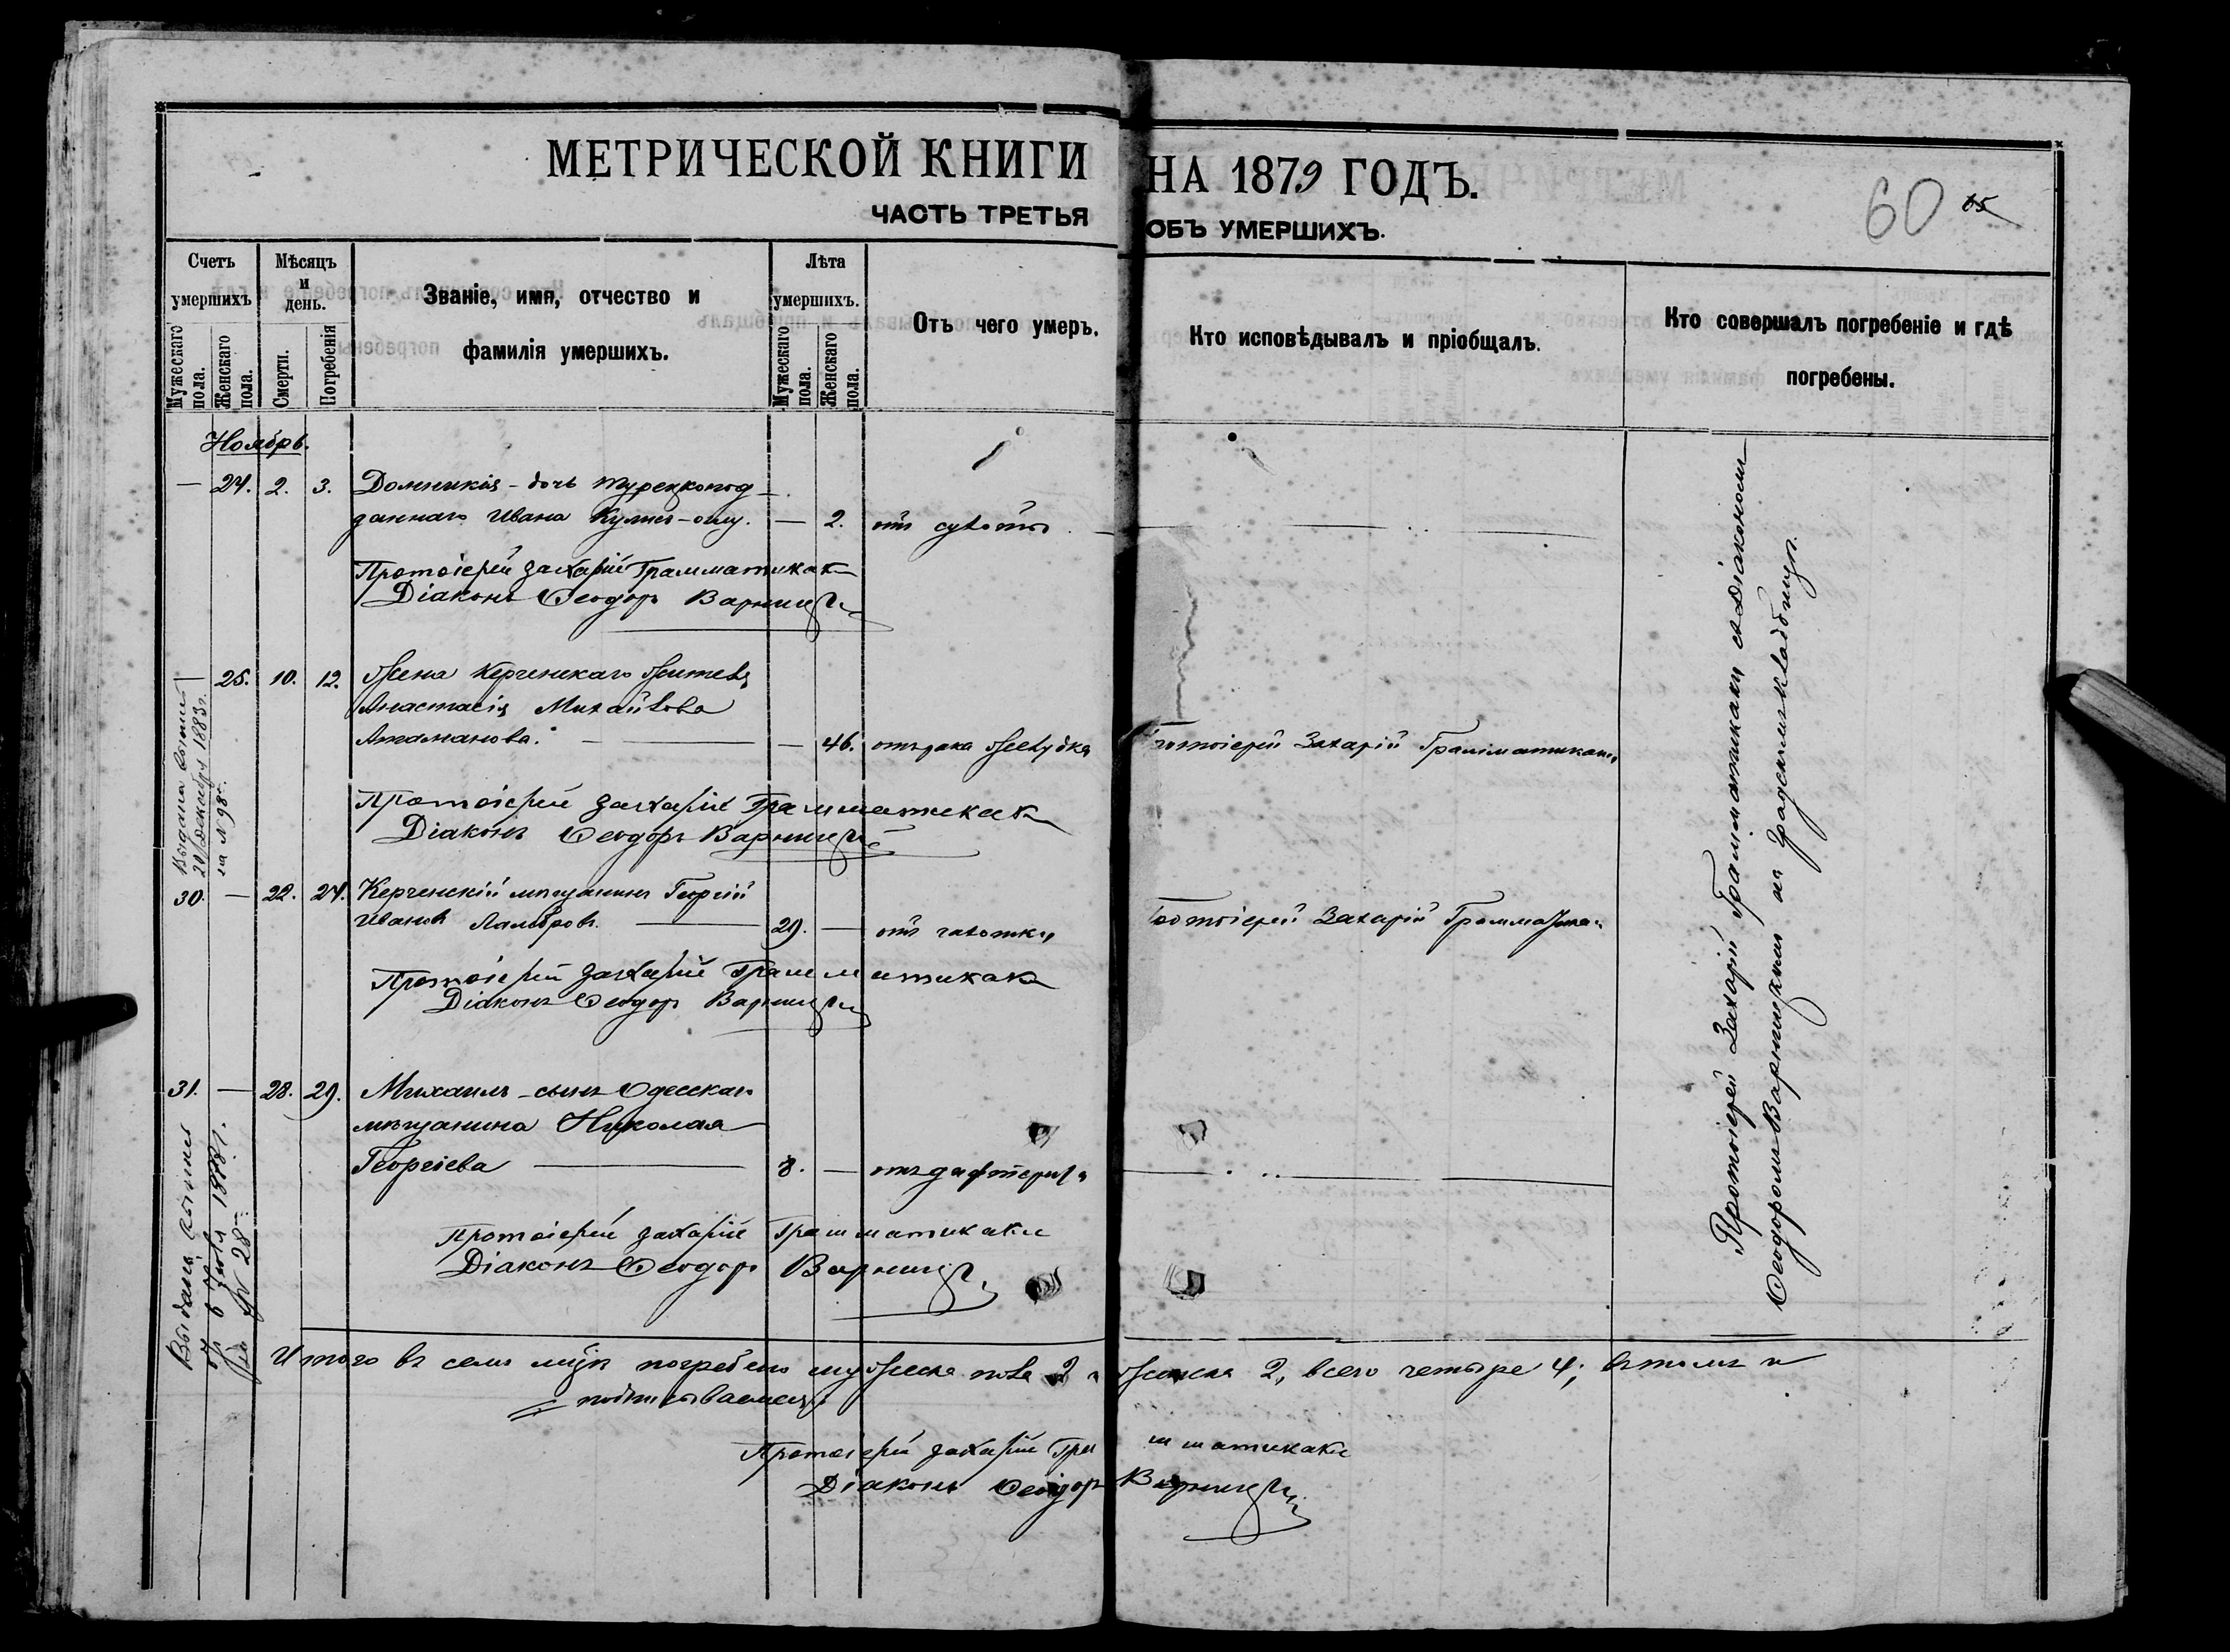 МЕТРИЧЕСКОЙ КНИГИ НА 1879 ГОДЪ.
60 65
ЧАСТЬ ТРЕТЬЯ ОБЪ УМЕРШИХЪ.
Счетъ умершихъ
Мужескаго пола.
Женскаго пола.
Мѣсяцъ и день.
Смерти.
Погребенія
Званіе, имя, отчество и
фамилія умершихъ.
Лѣта умершихъ.
Мужескаго пола.
Женскаго пола.
Отъ чего умеръ.
Кто исповѣдывалъ и пріобщалъ.
Кто совершалъ погребеніе и гдѣ
погребены.
Ноябрь.
— 24. 2. 3. Домникія - дочь турецкопод-
даннаго Ивана — 2. отъ сухоты
Протоіерей Захарій Грамматикаки
Діаконъ Ѳеодоръ Варницкій
— 25. 10. 12. Жена Керченскаго жителя
Анастасія Михайлова
Атаманова. — 46. отъ рака желудка Протоіерей Захарій Грамматикаки
Протоіерей Захарій Грамматикаки
Діаконъ Ѳеодоръ Варницкій
Выдана выпись
20 декабря 1883 г.
за № 98
30. — 22. 24. Керченскій мѣщанинъ Георгій
Ивановъ Ламбровъ. 29. — отъ чахотки Протоіерей Захарій Грамматикаки
Протоіерей Захарій Грамматикаки
Діаконъ Ѳеодоръ Варницкій
31. — 28. 29. Михаилъ - сынъ Одесскаго
мѣщанина Николая
Георгіева 8. — отъ дифтерита
Протоіерей Захарій Грамматикаки
Діаконъ Ѳеодоръ Варницкій
Выдана выпись
6 1888 г.
за № 28
Протоіерей Захарій Грамматикаки съ Діакономъ
Ѳеодоромъ Варницкимъ на Градскомъ кладбищѣ.
Итого въ семъ мѣсяцѣ погребено мужеска пола 2 и женска 2, всего четыре 4; въ томъ и
подписываемся
Протоіерей Захарій Грамматикаки
Діаконъ Ѳеодоръ Варницкій